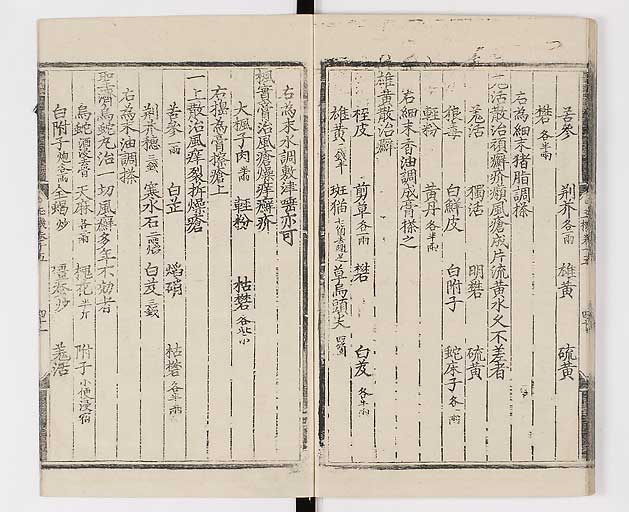 苦參 荆芥各兩 雄黄 硫黄
礬各半兩
右為細末猪脂調搽
二活散治頑癬疥癩風瘡成片流黄水久不差者
羗活 獨活 明礬 硫黄
狼毒 白鮮皮 白附子 蛇床子各一兩
輕粉 黄丹各半兩
右細末香油調成膏搽之
雄黄散治癬
剪草各兩 礬 白芨各半兩
雄黄 班猫七箇去頭足 草烏頭尖四箇
右為末水調敷津唾亦可
楓實膏治風瘡燥痒癬疥
大楓子肉半兩 輕粉 枯礬各些小
右擣為膏搽瘡上
一上散治風痒裂拆燥瘡
苦參一兩 白芷 焰硝 枯礬各半兩
荆芥穂三錢 寒水石二兩煅 白芨三錢
右為末油調搽
聖濟烏蛇丸治一切風癬多年不効者
烏蛇酒浸去骨 天麻各二兩 附子小便浸一宿
白附子炮各一兩 全蝎炒 殭蚕炒 羗活